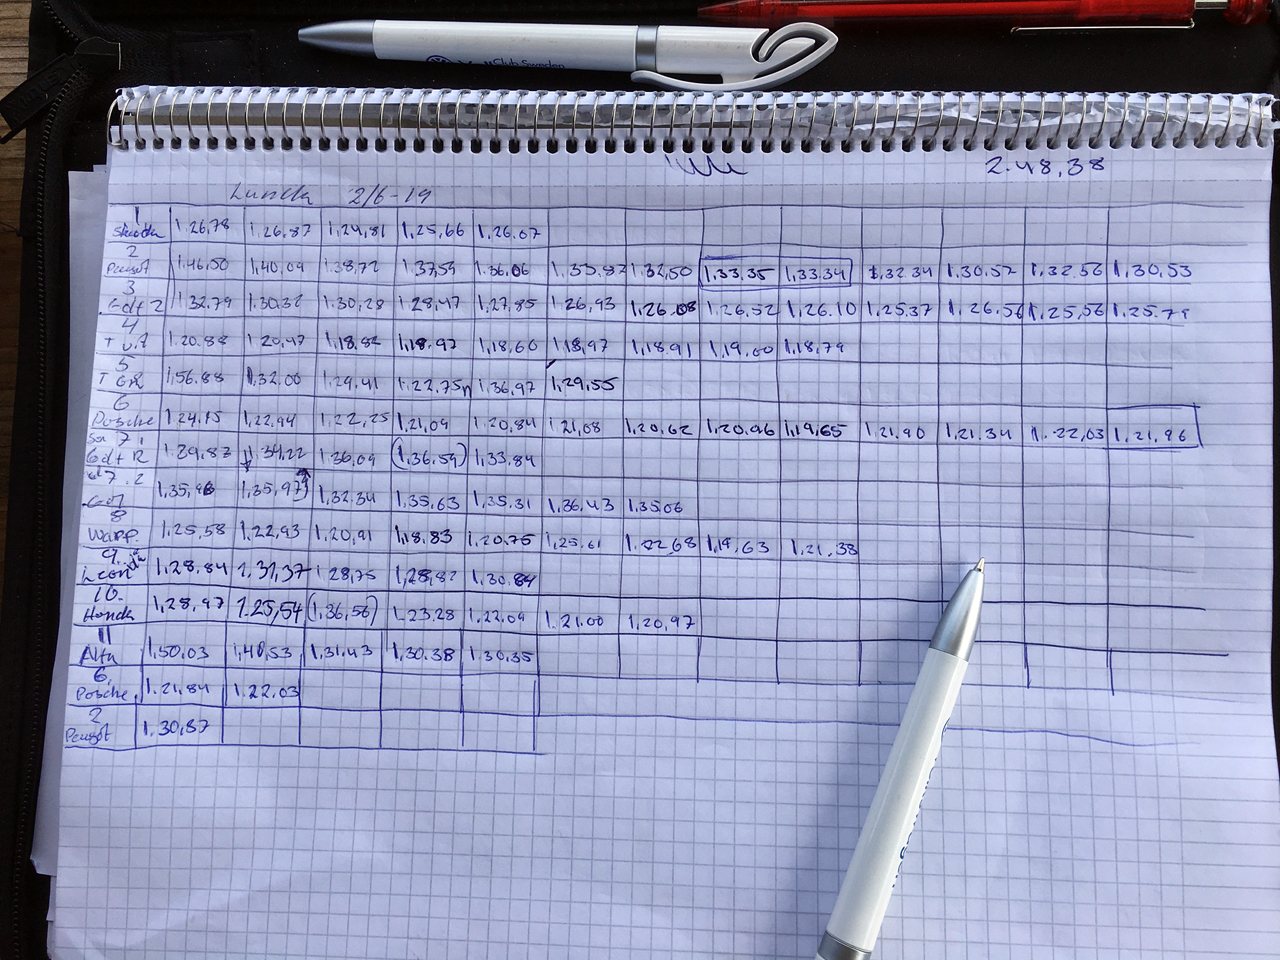 Club Sweden
2.48,38
Lunda 2/6-19
1
Skoda 1.26,78 1.26,87 1.24,81 1,25,66 1,26.07
2
Peugot 1.46,50 1,40,09 1.38,72 1.37,59 1.36.06 1.33.82 1.32,50 1,33,35 1,33,34 1,32 34 1.30.52 1,32,56 1,30,53
3
Golf 2 1.32.79 1.30.32 1.30,28 1.28,47 1.27,85 1.26,93 1,26.08 1.26,52 1,26.10 1,25.37 1,26.56 1,25,56 1.25.79
4
1.20.88 1.20,47 1,18,82 1,18.97 1,18,60 1,18,97 1,18.91 1,19,00 1,18,79
5
1,56.88 1,32.00 1.29,41 1.22,75 1.36,97 1,29,55
6
Posche 1.24,15 1,22,94 1.22,25 1,21,09 1.20,84 1,21,08 1,20,62 1,20,96 1,19,65 1,21,90 1,21,34 1.22,03 1,21,96
7.1
Golf R 1.29,87 1,34,22 1.36,09 (1,36,59) 1,33.84
7.2
Golf 1,35,46 1,35,97 1,32.34 1,35.63 1,35.31 1,36.43 1,35.06
8
Wapp. 1,25,58 1,22,93 1,20,91 1,18.83 1.20.75 1,25,61 1.22,68 1,19,63 1,21.38
9.
Leon 1,28,84 1,31,37 1.28,75 1,28,82 1,30.84
10.
Honda 1,28,97 1.25,54 (1,36,56) 1.23.28 1.22.09 1.21.00 1,20,97
11
Alfa 1,50.03 1,40,53 1,31,43 1,30.38 1.30.35
6.
Posche 1.21,84 1.22.03
2
Peugot 1.30,87